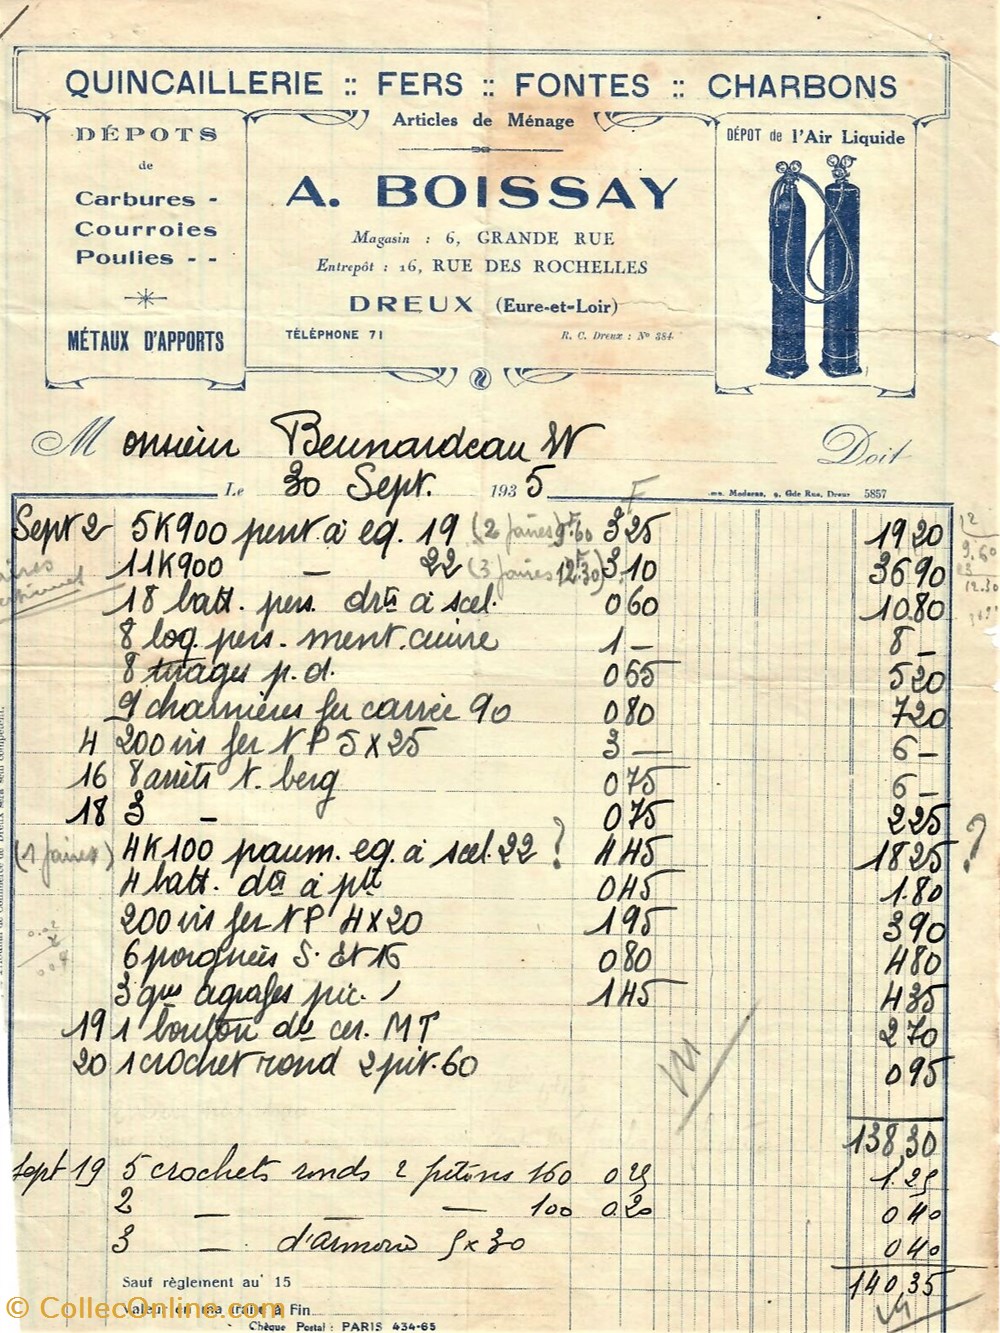 QUINCAILLERIE :: FERS :: FONTES :: CHARBONS
Articles de Ménage
DÉPOTS
de
Carbures -
Courroies
Poulies - -
MÉTAUX D'APPORTS
A. BOISSAY
Magasin : 6, GRANDE RUE
Entrepôt : 16, RUE DES ROCHELLES
DREUX (Eure-et-Loir)
TÉLÉPHONE 71
R. C. Dreux : Nº 384
DÉPOT de l'Air Liquide
Monsieur Beunardeau Doit
Le 30 Sept. 1935
Gde Rue, Dreux 5857
Sept 2 5K900 pent. à eq. 19 (2 paires) 9.60 3 25 19 20
11K900 — 22 (3 paires 12.30) 3 10 36 90
18 batt. pers. à scel. 0 60 10 80
8 loq. pers. ment. cuivre 1 — 8 —
8 p. d. 0 65 5 20
9 charnières fer carrée 90 0 80 7 20
4 200 vis fer NP 5 x 25 3 — 6 —
16 8 arrêts t. berg 0 75 6 —
18 3 — 0 75 2 25
4K100 paum. eq. à scel. 22 ? 4 45 18 25 ?
4 batt. à 0 45 1.80
200 vis fer NP 4 x 20 1 95 3 90
6 poignées S. Et 16 0 80 4 80
3 agrafes pic. 1 45 4 35
19 1 bouton cer. MT 2 70
20 1 crochet rond 2 pit. 60 0 95
138,30
Sept 19 5 crochets ronds 2 pitons 160 0 25 1.25
2 — — — 100 0.20 0 40
3 — d'armoire 5 x 30 0 40
140,35
Sauf règlement au 15
Valeur en ma traite à Fin
Chèque Postal : PARIS 434-65
© CollecOnline.com